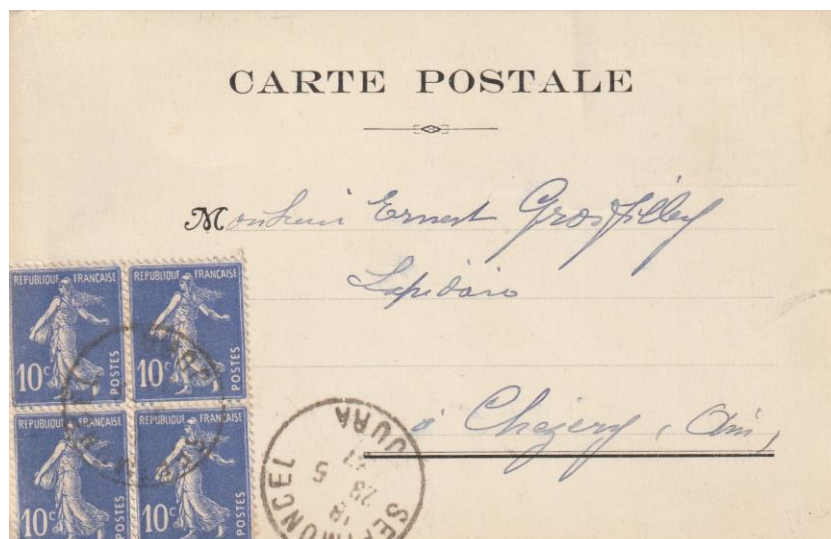 CARTE POSTALE
Monsieur Ernest Grosfilley
Lapidaire
à Chezery, Ain,
REPUBLIQUE FRANÇAISE
10c
POSTES
REPUBLIQUE FRANÇAISE
10c
POSTES
REPUBLIQUE FRANÇAISE
10c
POSTES
REPUBLIQUE FRANÇAISE
10c
POSTES
SEPTMONCEL
JURA
18
23
5